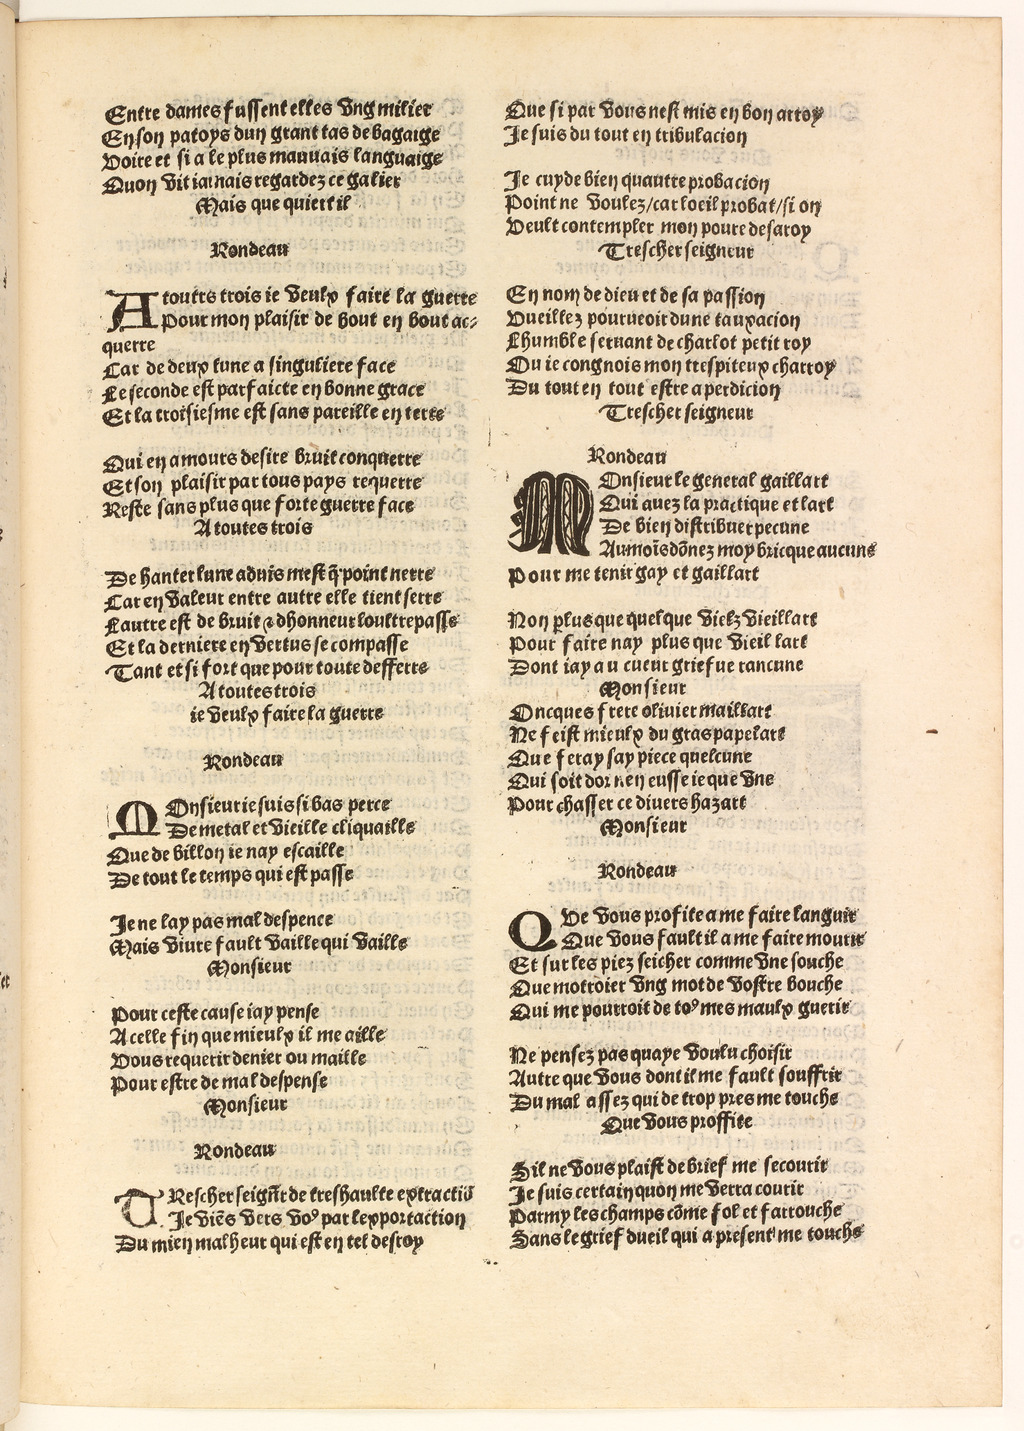 Entre dames fussent elles vng milier
En son patoys dun grant tas de bagaige
Voire et si a le plus mauuais languaige
Quon vit iamais regardez ce galier
Mais que quiert il
Rondeau
A toutes trois ie veulx faire la guerre
Pour mon plaisir de bout en bout ac-
querre
Car de deux lune a singuliere face
Le seconde est parfaicte en bonne grace
Et la troisiesme est sans pareille en terre
Qui en amours desire bruit conquerre
Et son plaisir par tous pays requerre
Reste sans plus que forte guerre face
A toutes trois
De hanter lune aduis mest q̃ point nerre
Car en valeur entre autre elle tient serre
Lautre est de bruit & dhonneur loultrepasse
Et la derniere en vertus se compasse
Tant et si fort que pour toute desserre
A toutes trois
ie veulx faire la guerre
Rondeau
MOnsieur ie suis si bas perce
De metal et vieille cliquaille
Que de billon ie nay escaille
De tout le temps qui est passe
Je ne lay pas mal despence
Mais viure fault vaille qui vaille
Monsieur
Pour ceste cause iay pense
A celle fin que mieulx il me aille
Vous requerir denier ou maille
Pour estre de mal despense
Monsieur
Rondeau
TRescher seigñr de treshaulte extractiõ
Je viẽs vers voꝰ par lexportaction
Du mien malheur qui est en tel desroy
Que si par vous nest mis en bon arroy
Je suis du tout en tribulacion
Je cuyde bien quautre probacion
Point ne voulez/car loeil probat/si on
Veult contempler mon poure desaroy
Trescher seigneur
En nom de dieu et de sa passion
Vueillez pourueoir dune tauxacion
Lhumble seruant de charlot petit roy
Ou ie congnois mon trespiteux charroy
Du tout en tout estre a perdicion
Trescher seigneur
Rondeau
MOnsieur le general gaillart
Qui auez la practique et lart
De bien distribuer pecune
Au moĩs dõnez moy bricque aucune
Pour me tenir gay et gaillart
Non plus que quelque vielz vieillart
Pour faire nay plus que vieil lart
Dont iay au cueur griefue rancune
Monsieur
Oncques frere oliuier maillart
Ne feist mieulx du gras papelart
Que feray say piece quelcune
Qui soit dor nen eusse ie que vne
Pour chasser ce diuers hazart
Monsieur
Rondeau
QVe vous profite a me faire languir
Que vous fault il a me faire mourir
Et sur les piez seicher comme vne souche
Que motroier vng mot de vostre bouche
Qui me pourroit de toꝰ mes maulx guerir
Ne pensez pas quaye voulu choisir
Autre que vous dont il me fault souffrir
Du mal assez qui de trop pres me touche
Que vous proffite
Sil ne vous plaist de brief me secourir
Je suis certain quon me verra courir
Parmy les champs cõme fol et farrouche
Sans le grief dueil qui a present me touche